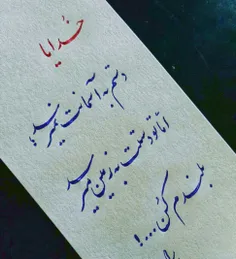 خدایا
دستم به آسمانت نمیرسد
اما تو دستت به زمین میرسد
بلندم کن...!